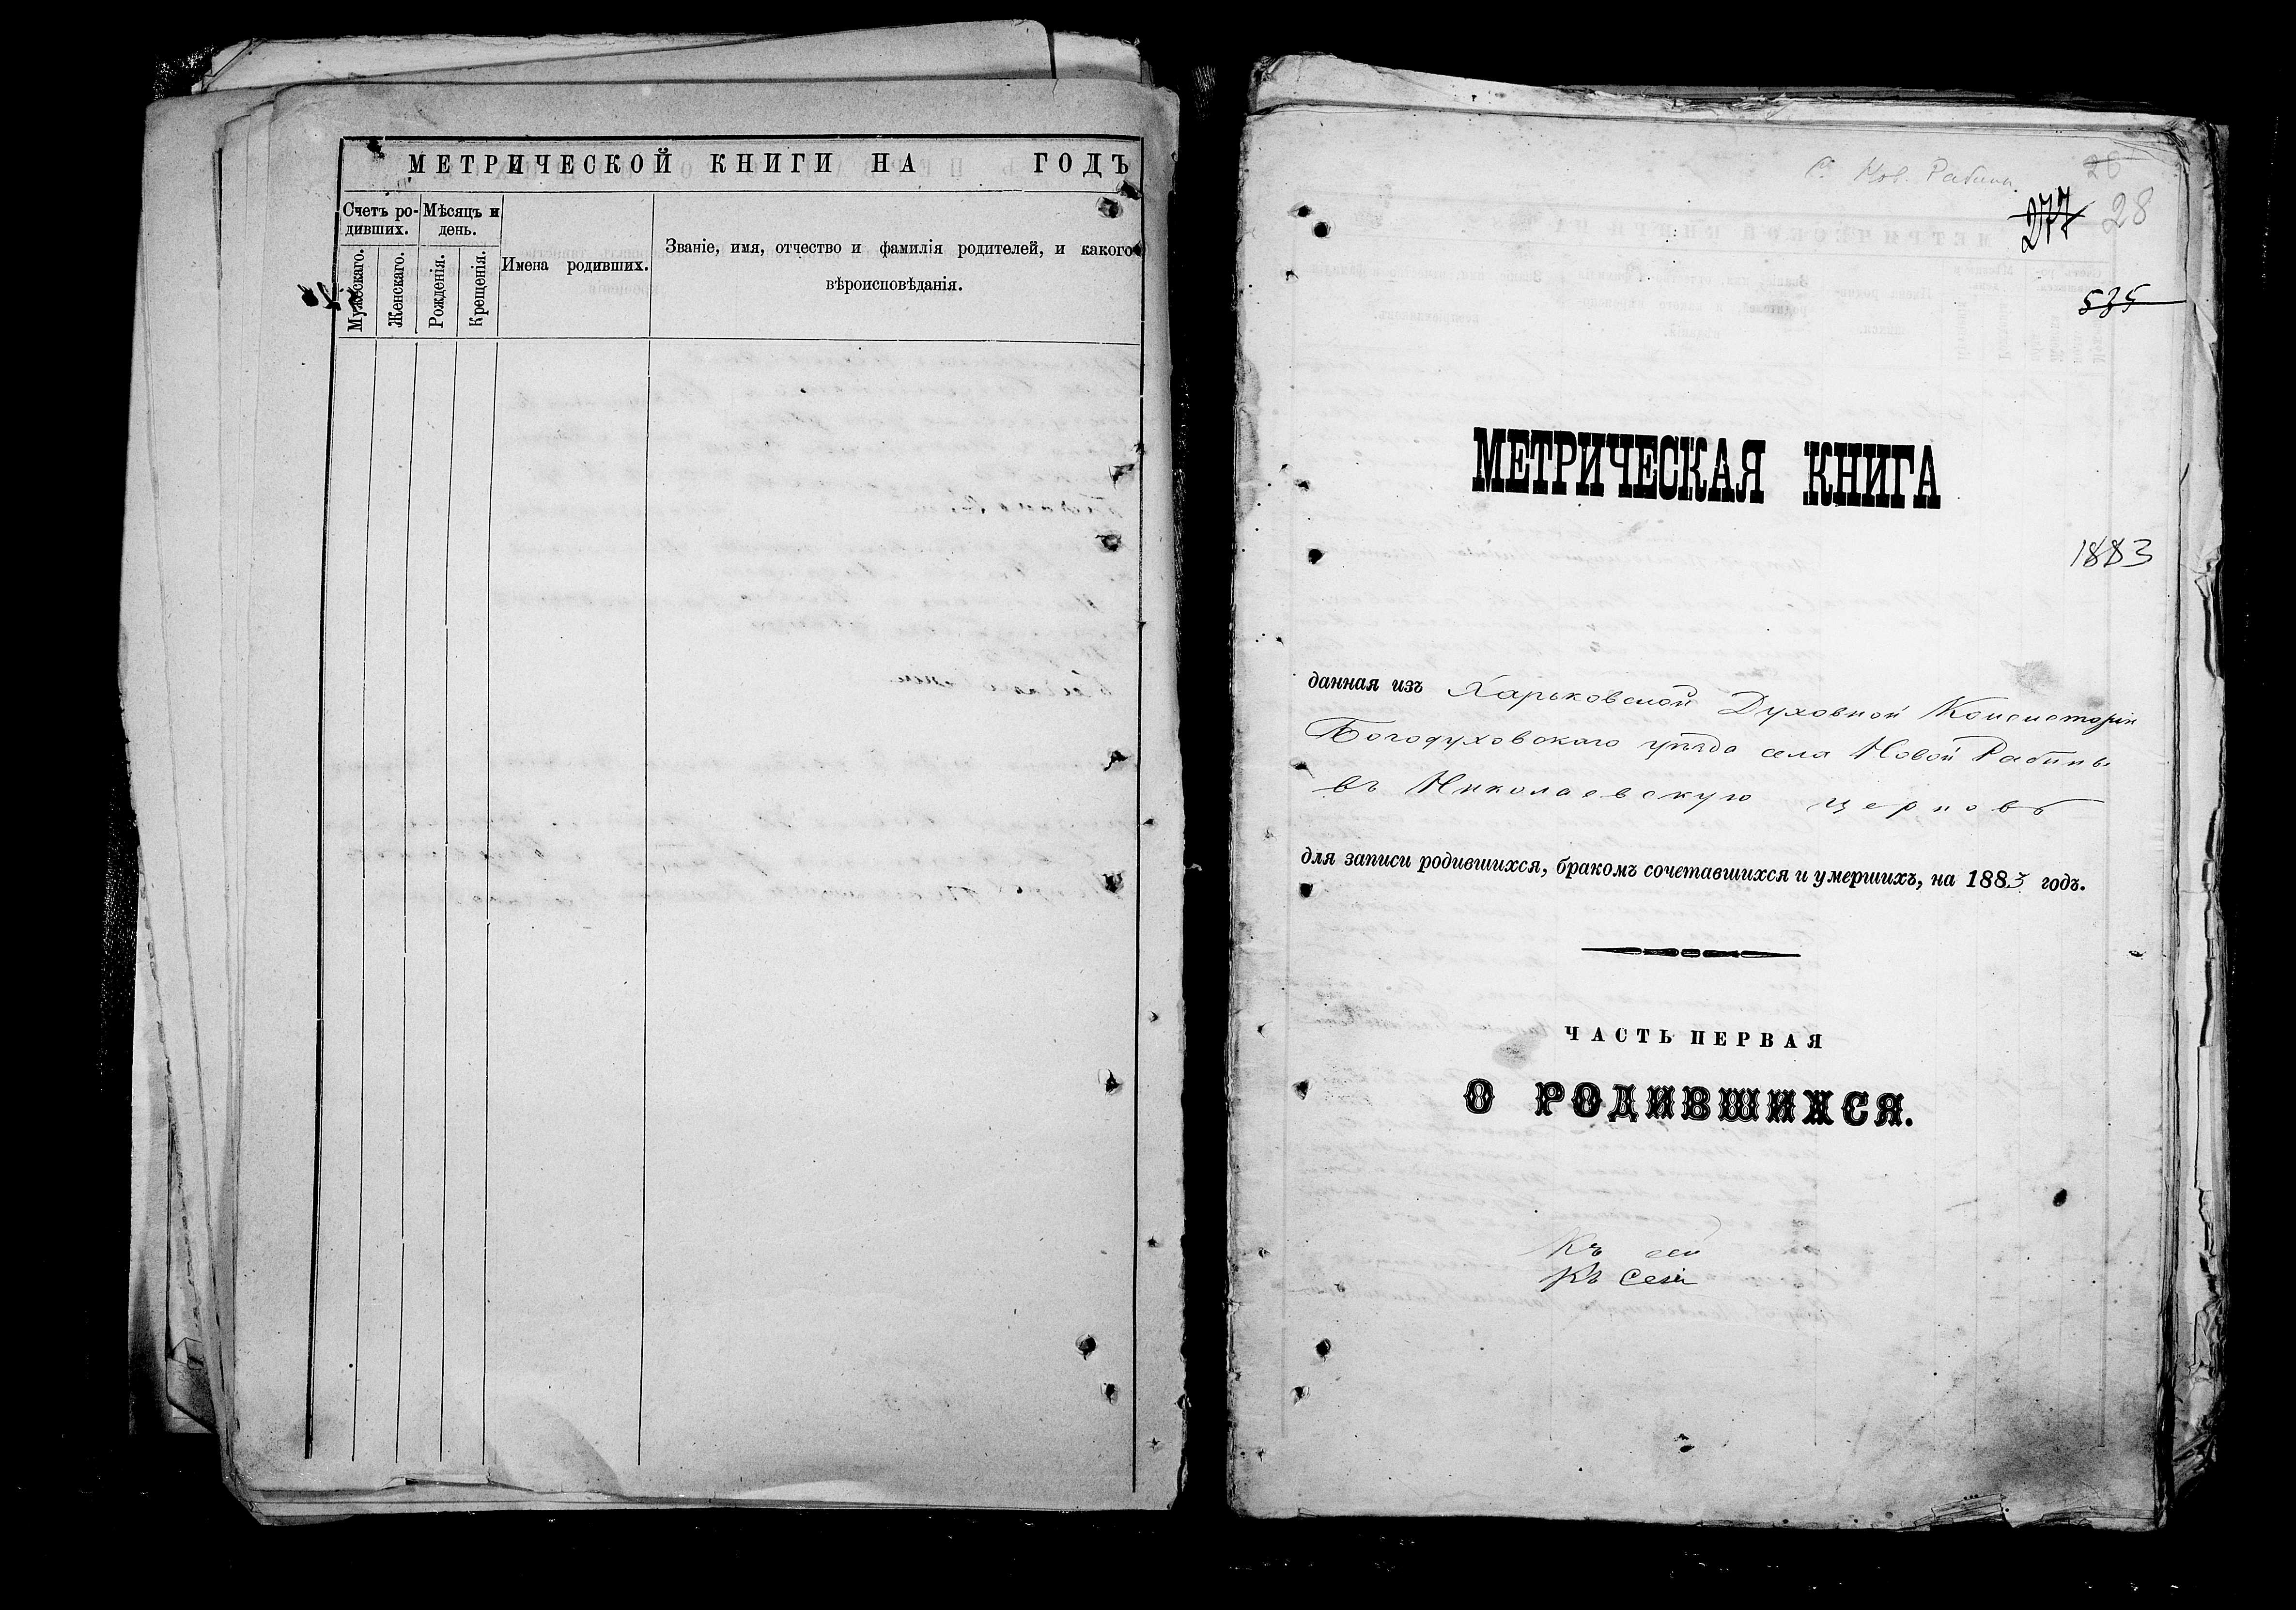 МЕТРИЧЕСКОЙ КНИГИ НА ГОДЪ
Счетъ ро-
дившихъ.
Мѣсяцъ и
день.
Мужескаго.
Женскаго.
Рожденія.
Крещенія.
Имена родившихъ.
Званіе, имя, отчество и фамилія родителей, и какого
вѣроисповѣданія.
Нов. Рабины
28
277
535
МЕТРИЧЕСКАЯ КНИГА
1883
данная изъ Харьковской Духовной Консисторіи
Богодуховскаго уѣзда села Новой Рабины
въ Николаевскую церковь
для записи родившихся, бракомъ сочетавшихся и умершихъ, на 1883 годъ.
ЧАСТЬ ПЕРВАЯ
О РОДИВШИХСЯ.
Къ сей
Къ сей